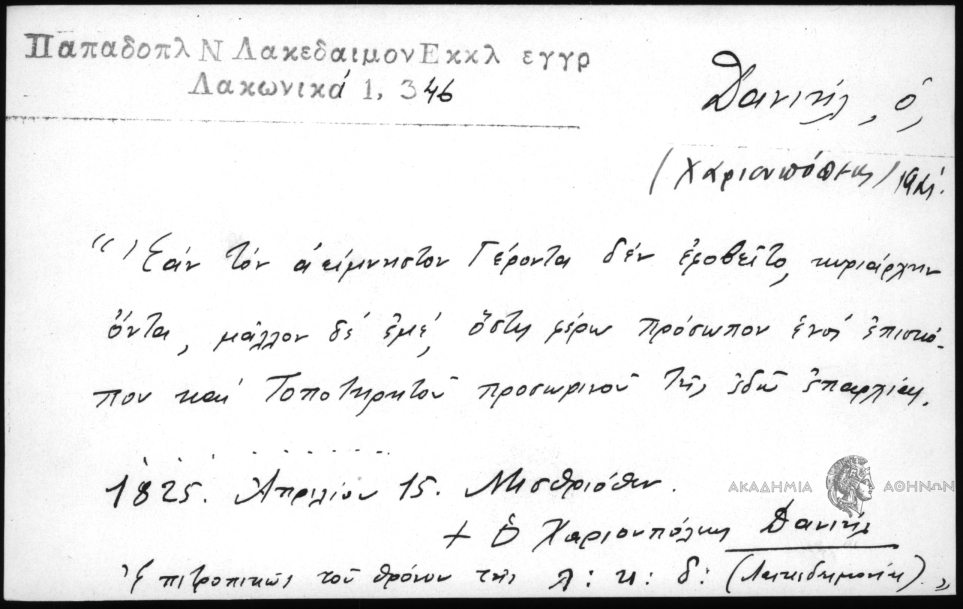 Παπαδοπλ Ν ΛακεδαιμονΕκκλ εγγρ
Λακωνικά 1, 346
Δανιήλ, ὁ,
(Χαριουπόλεως)
“Ἐάν τόν ἀείμνηστον Γέροντα δέν ἐφοβεῖτο, κυριάρχην
ὄντα, μᾶλλον δέ ἐμέ, ὅστις φέρω πρόσωπον ἑνός ἐπισκό-
που καί Τοποτηρητοῦ προσωρινοῦ τῆς ἐδῶ ἐπαρχίας.
. . . . . . . . . .
1825. Ἀπριλίου 15. Μισθριόθεν.
ΑΚΑΔΗΜΙΑ ΑΘΗΝΩΝ
+ Ὁ Χαριουπόλεως Δανιήλ
Ἐπιτροπικῶς τοῦ θρόνου τῆς Λ: κ: δ: (Λακεδαιμονίας).„